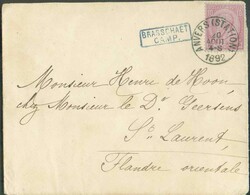 BRASSCHAET
CAMP.
ANVERS (STATION)
10
AOUT
4-S
1892
Monsieur Henri de Hoon
chez Monsieur le Dr. Geersens
St. Laurent,
Flandre orientale